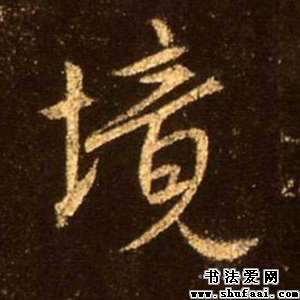 境
书法爱网
www.shufaai.com